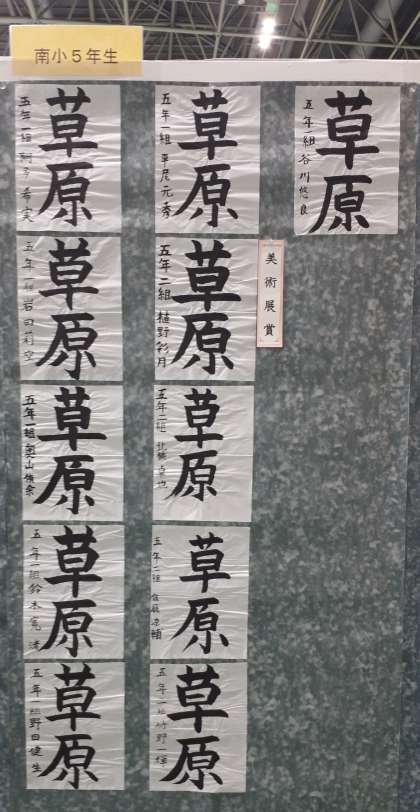 南小5年生
草原
五年一組 谷川悠良
草原
五年一組 平尾元秀
草原
五年二組 樋野彩月
美術展賞
草原
五年二組
草原
五年二組
草原
五年一組
草原
五年一組 希実
草原
五年 岩田莉空
草原
五年一組 奥山
草原
五年一組 鈴木
草原
五年一組 野田健生